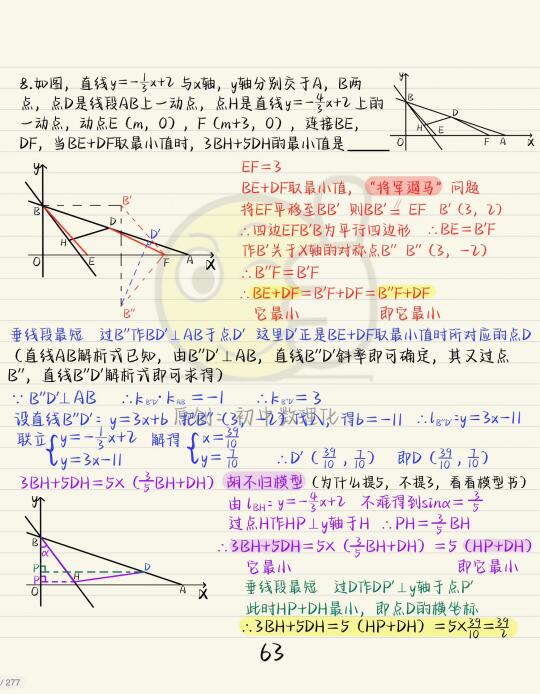 8.如图，直线y=-1/3x+2 与x轴，y轴分别交于A，B两
点，点D是线段AB上一动点，点H是直线y=-4/3x+2上的
一动点，动点E（m，0），F（m+3，0），连接BE，
DF，当BE+DF取最小值时，3BH+5DH的最小值是______
y
B
D
H
O
E
F
A
x
y
B
B'
D
D'
H
O
E
F
A
x
B''
EF=3
BE+DF取最小值，“将军遛马”问题
将EF平移至BB' 则BB'=EF B'(3，2)
∴四边形EFB'B为平行四边形 ∴BE=B'F
作B'关于X轴的对称点B'' B''(3，-2)
∴B''F=B'F
∴BE+DF=B'F+DF=B''F+DF
它最小 即它最小
垂线段最短 过B''作BD'⊥AB于点D' 这里D'正是BE+DF取最小值时所对应的点D
（直线AB解析式已知，由B''D'⊥AB，直线B''D'斜率即可确定，其又过点
B''，直线B''D'解析式即可求得）
∵B''D'⊥AB ∴k_B''D'·k_AB=-1 ∴k_B''D'=3
设直线B''D'：y=3x+b 把B''(3，-2)代入，得b=-11 ∴l_B''D'：y=3x-11
联立{y=-1/3x+2 y=3x-11 解得{x=39/10 y=7/10 ∴D'(39/10，7/10) 即D(39/10，7/10)
3BH+5DH=5×(3/5BH+DH) 胡不归模型（为什么提5，不提3，看看模型书）
由l_BH：y=-4/3x+2 不难得到sinα=3/5
过点H作HP⊥y轴于H ∴PH=3/5BH
∴3BH+5DH=5×(3/5BH+DH)=5(HP+DH)
它最小 即它最小
垂线段最短 过D作DP'⊥y轴于点P'
此时HP+DH最小，即点D的横坐标
∴3BH+5DH=5(HP+DH)=5×39/10=39/2
y
B
α
P'
P
H
D
O
A
x
63
/ 277